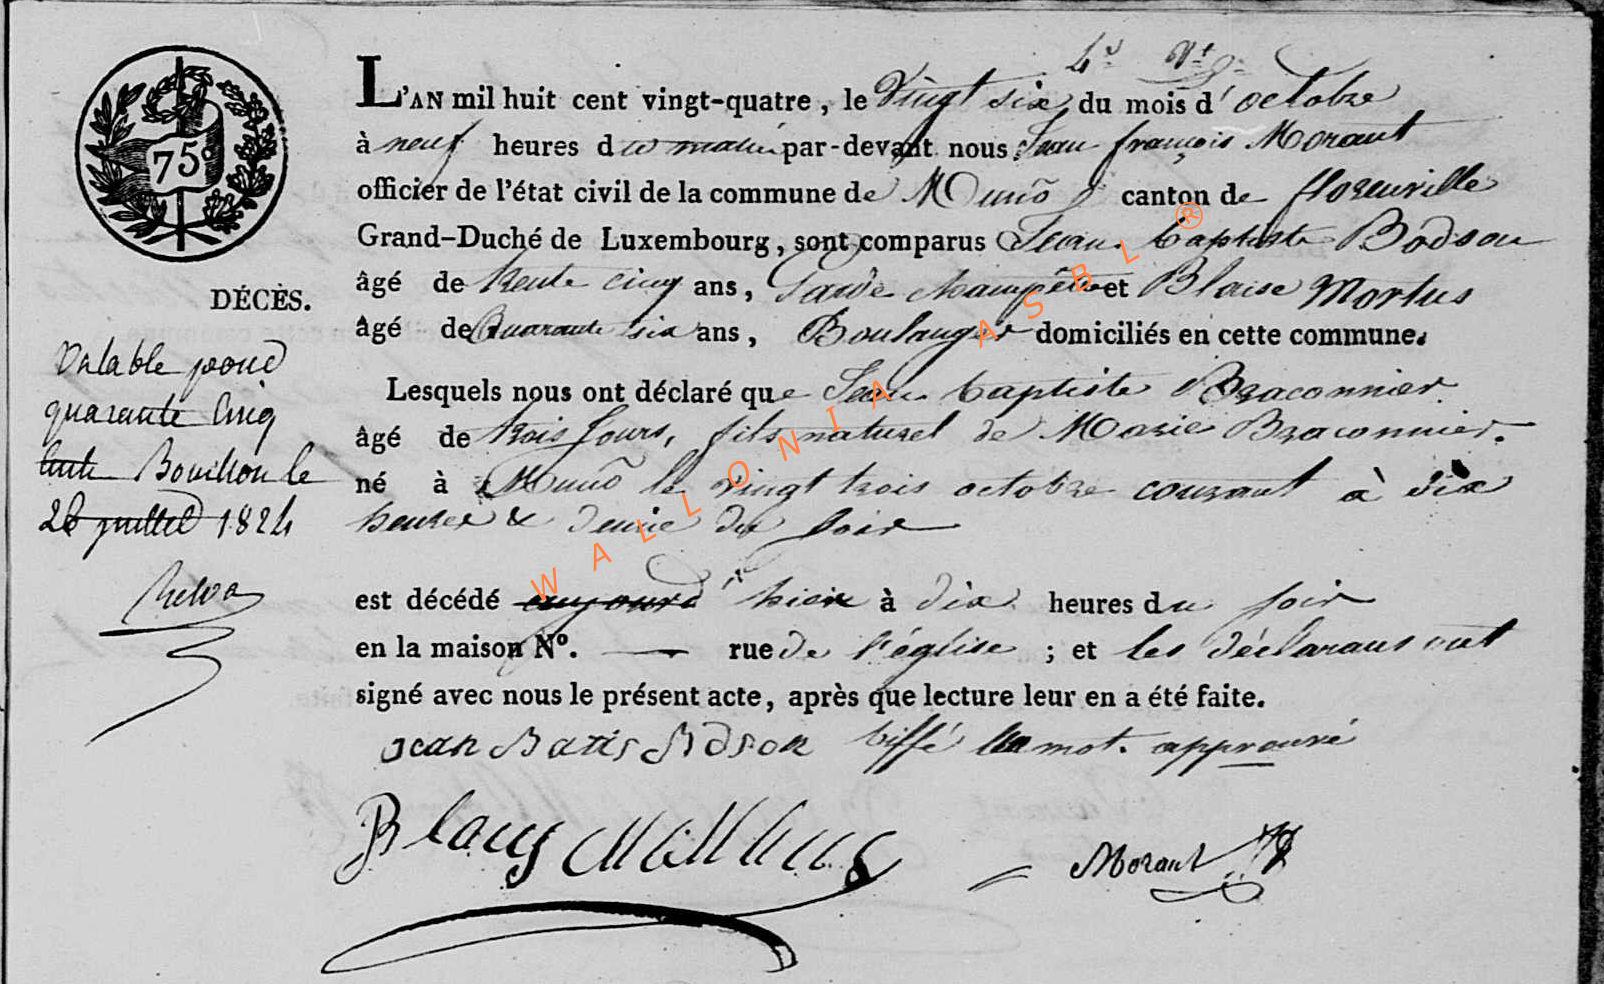 4e Vt
L'AN mil huit cent vingt-quatre, le Vingt six du mois d'octobre
à neuf heures du matin par-devant nous Jean françois Morant
officier de l'état civil de la commune de Muno canton de florenville
Grand-Duché de Luxembourg, sont comparus Jean baptiste Bodson
âgé de trente cinq ans, Garde champêtre et Blaise Mortus
âgé de Quarante six ans, Boulanger domiciliés en cette commune.
Lesquels nous ont déclaré que Jean baptiste Braconnier
âgé de trois Jours, fils naturel de Marie Braconnier.
né à Muno le vingt trois octobre courant à dix
heures & demie du soir
est décédé aujourd' hier à dix heures du soir
en la maison No. — rue de l'église ; et les déclarans ont
signé avec nous le présent acte, après que lecture leur en a été faite.
Jean Batis Bodson biffé un mot. approuvé
Morant
75c
DÉCÈS.
Valable pour
quarante Cinq
Bouillon le
26 juillet 1824
WALLONIA ASBL ®